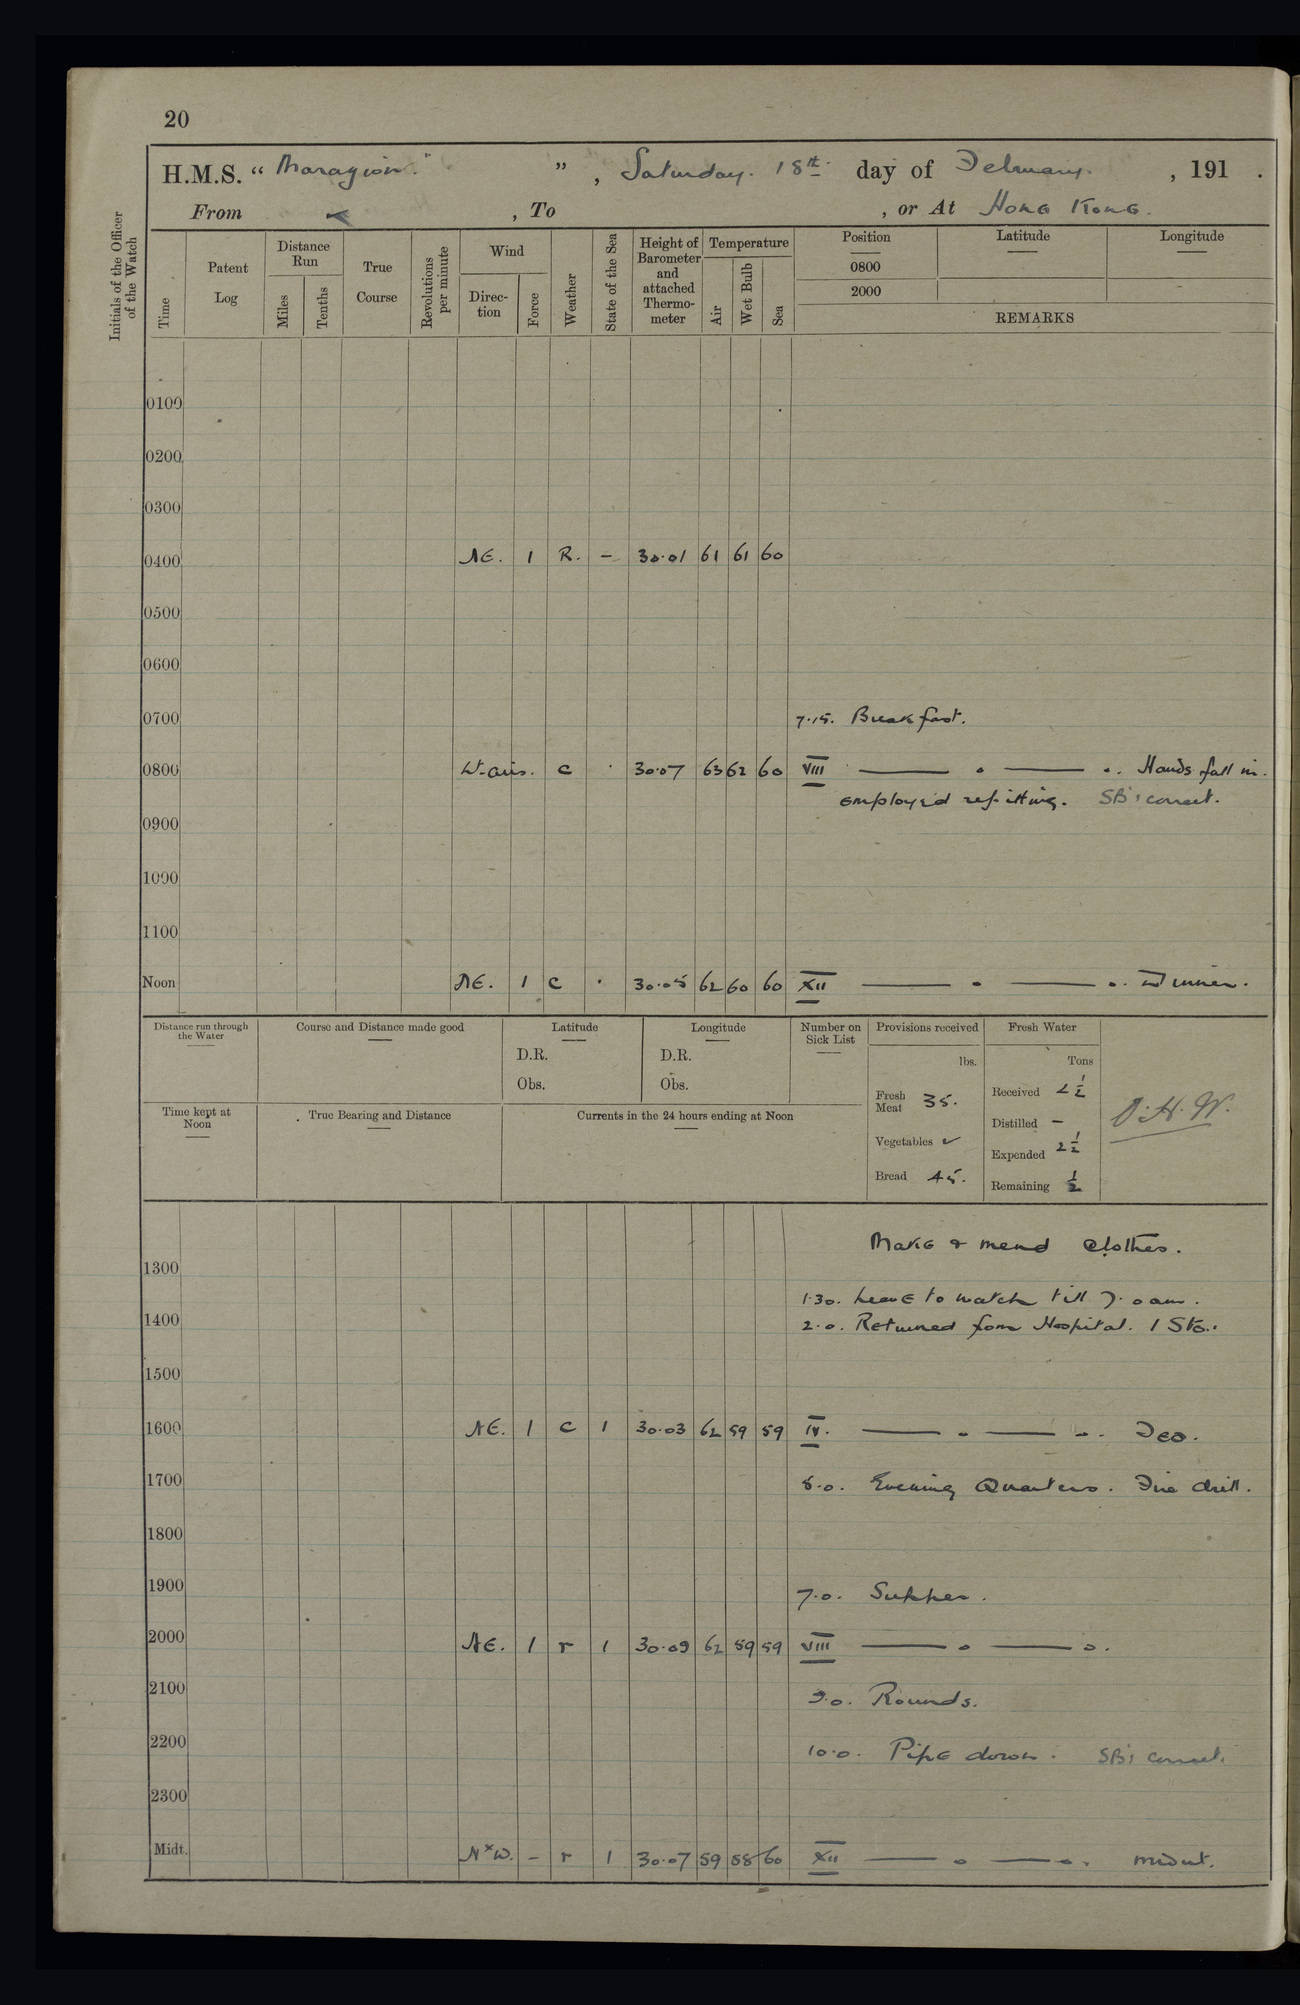 20
H.M.S. “ Marazion. ” , Saturday. 18th. day of February. , 191 .
From , To , or At Hong Kong.
Initials of the Officer of the Watch
Time
Patent Log
Distance Run
Miles
Tenths
True Course
Revolutions per minute
Wind
Direction
Force
Weather
State of the Sea
Height of Barometer and attached Thermometer
Temperature
Air
Wet Bulb
Sea
Position
Latitude
Longitude
0800
2000
REMARKS
0100
0200
0300
0400 NE. 1 R. – 30.01 61 61 60
0500
0600
0700 7.15. Breakfast.
0800 Lt-airs. c . 30.07 63 62 60 VIII Hands fall in.
employed refitting. SB's correct.
0900
1000
1100
Noon NE. 1 c . 30.05 62 60 60 XII Dinner.
Distance run through the Water
Course and Distance made good
Latitude
D.R.
Obs.
Longitude
D.R.
Obs.
Number on Sick List
Provisions received
lbs.
Fresh Meat 35.
Vegetables ✓
Bread 45.
Fresh Water
Tons
Received 2 1/2
Distilled –
Expended 2 1/2
Remaining 1/2
Time kept at Noon
True Bearing and Distance
Currents in the 24 hours ending at Noon
Make & mend clothes.
1300
1.30. Leave to watch till 7.0 am.
1400
2.0. Returned from Hospital. 1 Sto.
1500
1600 NE. 1 c 1 30.03 62 59 59 IV. Tea.
1700 5.0. Evening Quarters. Fire drill.
1800
1900 7.0. Supper.
2000 NE. 1 r 1 30.09 62 59 59 VIII
2100 9.0. Rounds.
2200 10.0. Pipe down. SB's correct.
2300
Midt. NxW. – r 1 30.07 59 58 60 XII